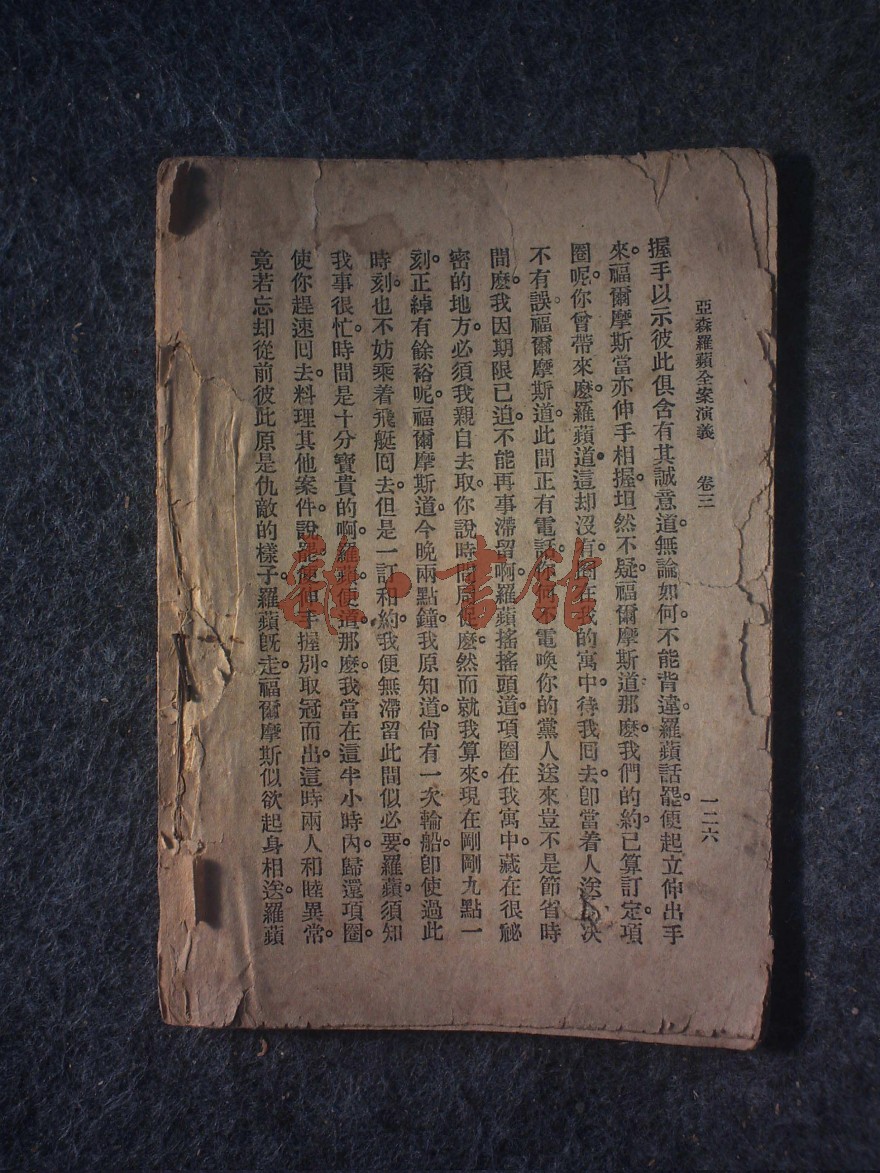 亞森羅蘋全案演義　卷三　一二六
握手以示彼此俱含有其誠意道。無論如何。不能背違。羅蘋話罷。便起立伸出手
來。福爾摩斯當亦伸手相握。坦然不疑。福爾摩斯道。那麽我們的約已算訂定。項
圈呢。你曾帶來麽。羅蘋道。這却沒有。圈在我的寓中。待我囘去。卽當着人送 决
不有誤。福爾摩斯道。此間正有電話。你何 電喚你的黨人送來。豈不是節省時
間麽。我因期限已迫。不能再事滯留啊。羅蘋搖搖頭道。項圈在我寓中。藏在很祕
密的地方。必須我親自去取。你說時間 促麽。然而就我算來。現在剛剛九點一
刻。正綽有餘裕呢。福爾摩斯道。今晚兩點鐘。我原知道。尙有一次輪船。卽使過此
時刻。也不妨乘着飛艇囘去。但是一訂和約。我便無滯留此間似必要。羅蘋。須知
我事很忙。時間是十分寶貴的啊。羅蘋便道。那麽。我當在這半小時內。歸還項圈。
使你趕速囘去。料理其他案件。說罷。便伸手握別。取冠而出。這時兩人和睦異常。
竟若忘却從前彼此原是仇敵的樣子。羅蘋旣走。福爾摩斯似欲起身相送。羅蘋
雜·書館